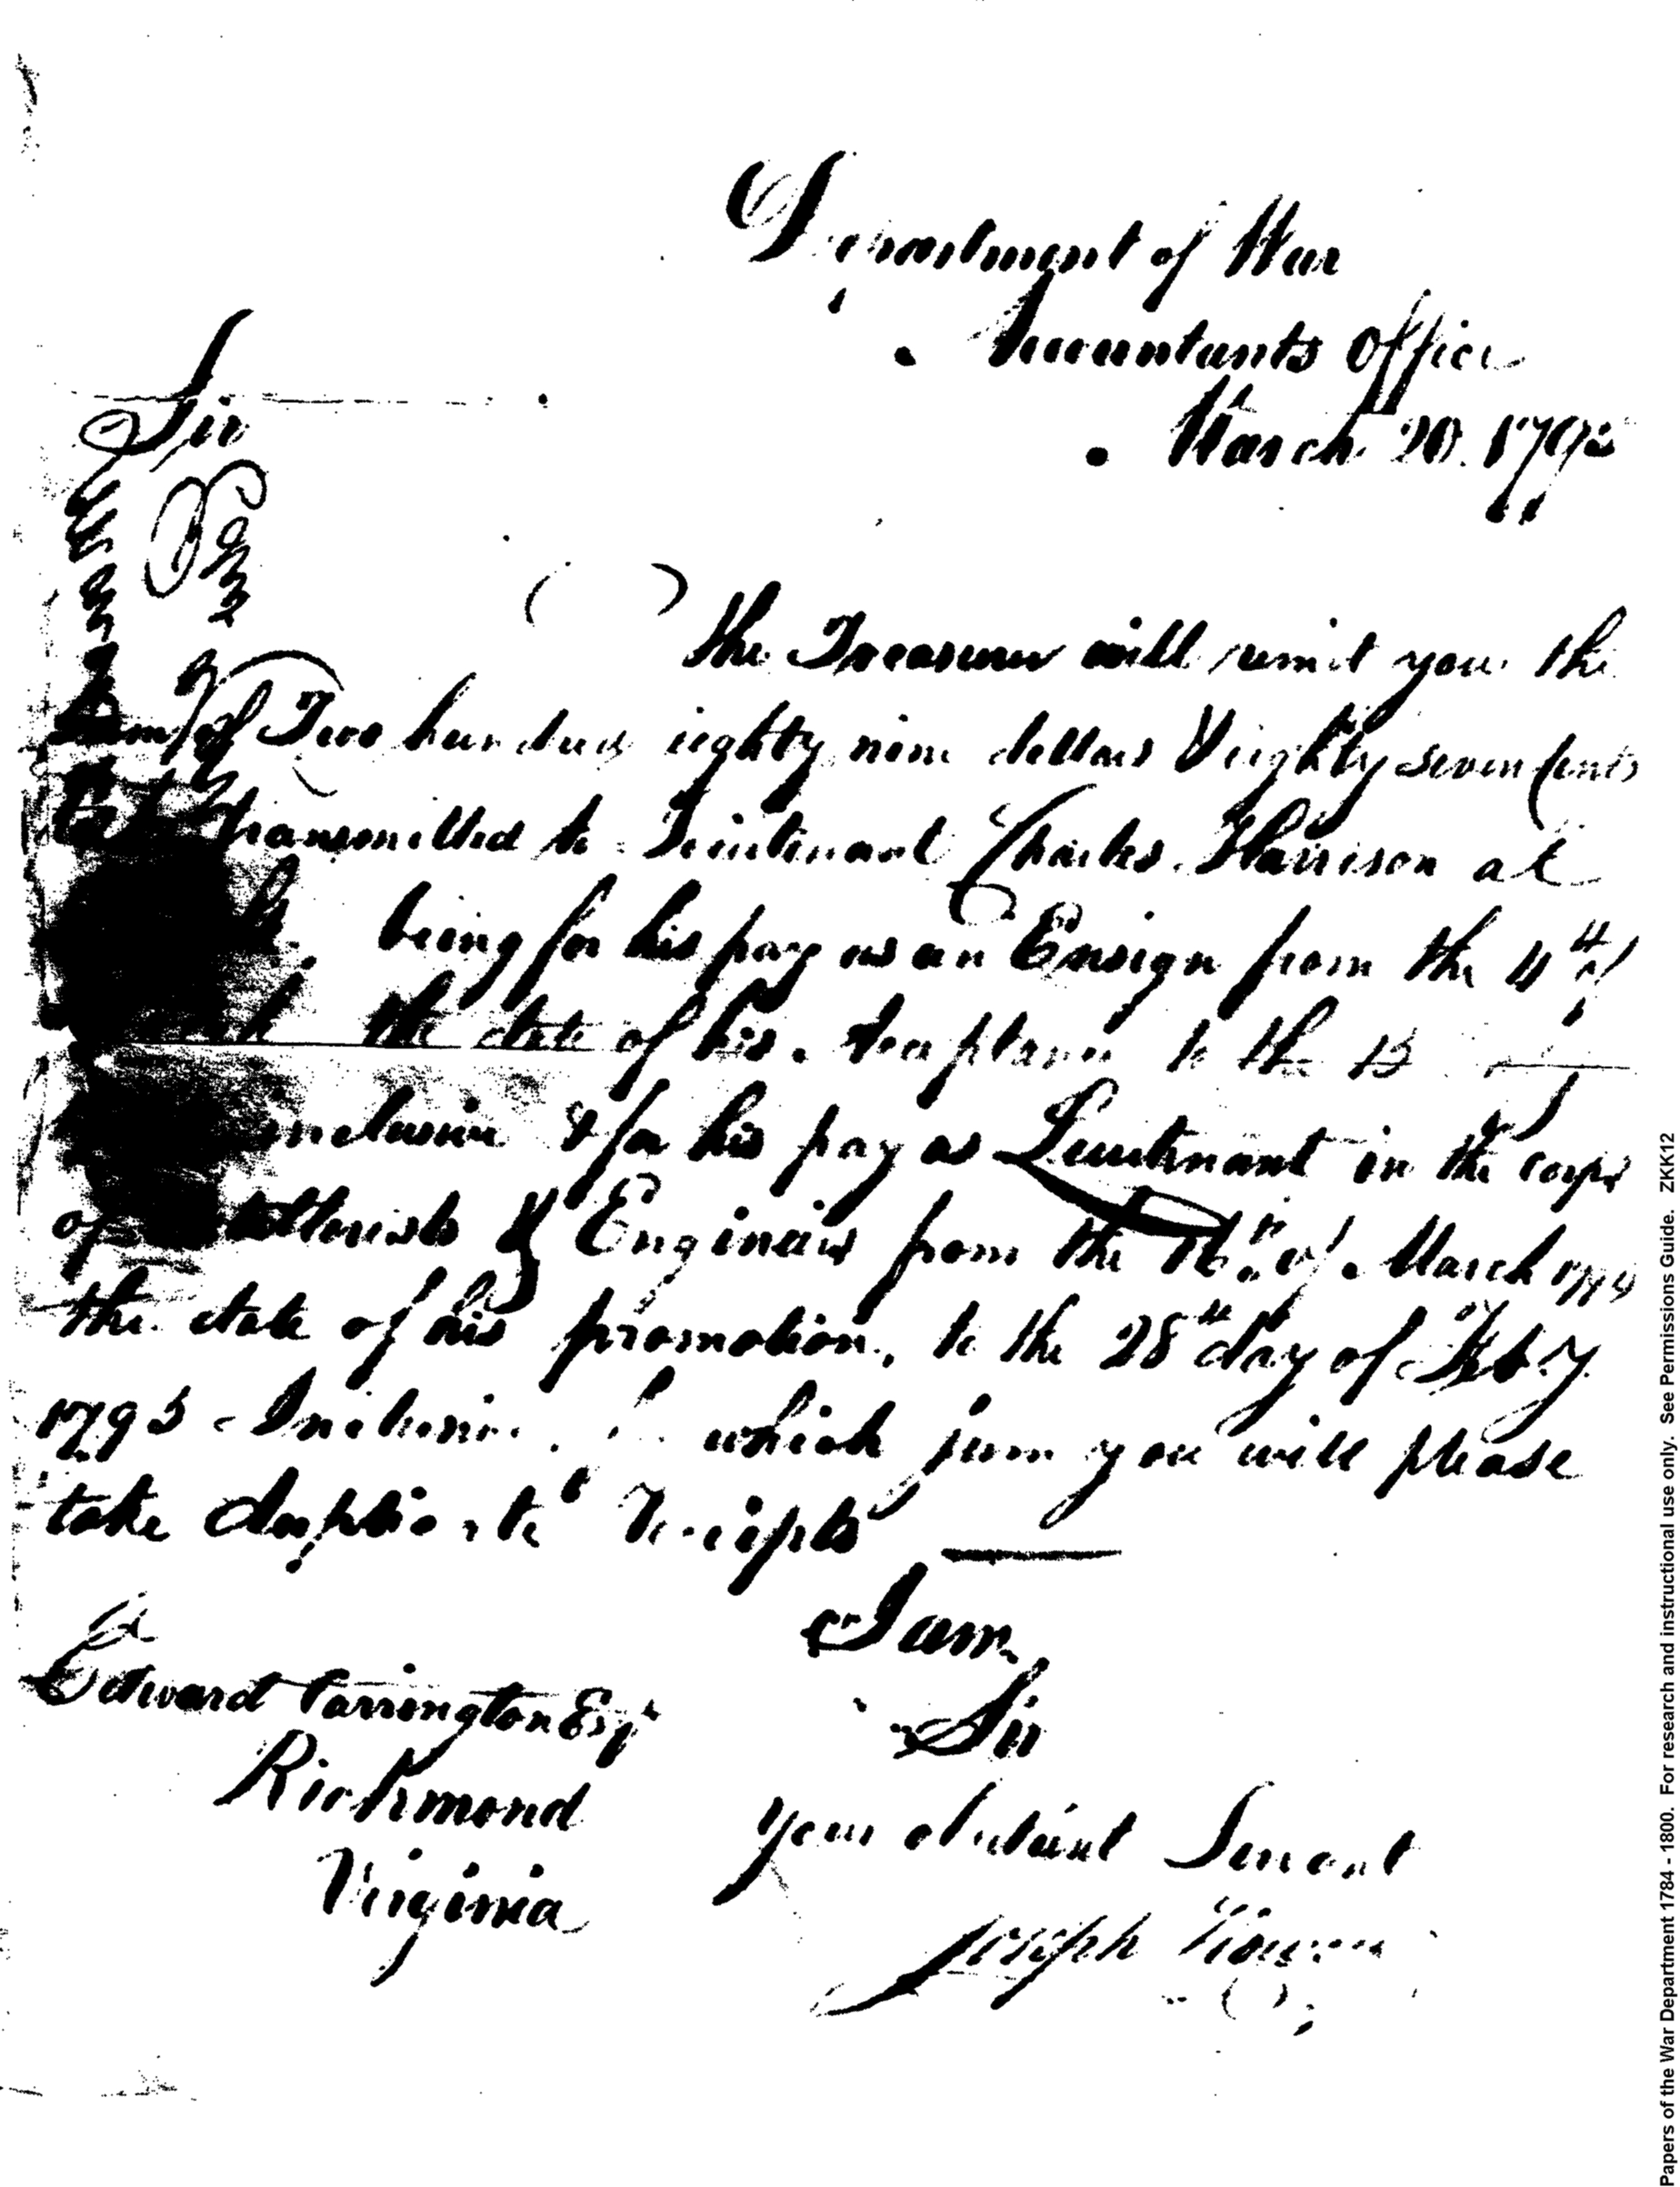 Department of War
Accountants Office
March 20. 1795
Sir
The Treasurer will remit you the
Sum of Two hundred eighty nine dollars & eighty seven Cents
transmitted to Lieutenant Charles Harrison at
being for his pay as an Ensign from the 11th
the date of his to the 15
inclusive & for his pay as Lieutenant in the corps
of Engineers from the 16th of March 1794
the date of his promotion, to the 28th day of Feby
1795 Inclusive. which sum you will please
take duplicate receipts
I am
Sir
Your obedient Servant
Joseph Howell
Edward Carrington Esqr
Richmond
Virginia
Papers of the War Department 1784 - 1800. For research and instructional use only. See Permissions Guide. ZKK12